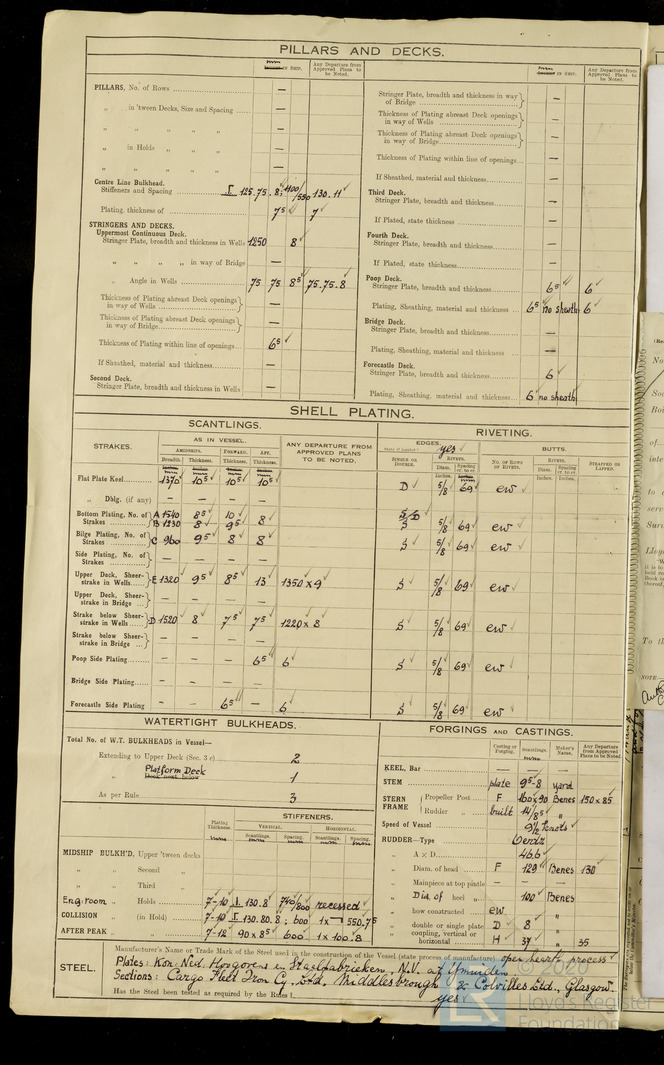 PILLARS AND DECKS.
IN SHIP.
Any Departure from Approved Plans to be Noted.
PILLARS, No. of Rows —
„ in 'tween Decks, Size and Spacing —
„ „ „ „ —
„ in Holds „ „ —
„ „ „ „ —
Centre Line Bulkhead.
Stiffeners and Spacing I 125.75.8; 130.11
Plating, thickness of 7⁵ 7
STRINGERS AND DECKS.
Uppermost Continuous Deck.
Stringer Plate, breadth and thickness in Wells 1250 8
„ „ „ „ in way of Bridge —
„ Angle in Wells 75 75 8⁵ 75.75.8
Thickness of Plating abreast Deck openings in way of Wells —
Thickness of Plating abreast Deck openings in way of Bridge —
Thickness of Plating within line of openings 6⁵
If Sheathed, material and thickness —
Second Deck.
Stringer Plate, breadth and thickness in Wells —
IN SHIP.
Any Departure from Approved Plans to be Noted.
Stringer Plate, breadth and thickness in way of Bridge —
Thickness of Plating abreast Deck openings in way of Wells —
Thickness of Plating abreast Deck openings in way of Bridge —
Thickness of Plating within line of openings —
If Sheathed, material and thickness —
Third Deck.
Stringer Plate, breadth and thickness —
If Plated, state thickness —
Fourth Deck.
Stringer Plate, breadth and thickness —
If Plated, state thickness —
Poop Deck.
Stringer Plate, breadth and thickness 6⁵ 6
Plating, Sheathing, material and thickness 6⁵ no sheath 6
Bridge Deck.
Stringer Plate, breadth and thickness —
Plating, Sheathing, material and thickness —
Forecastle Deck.
Stringer Plate, breadth and thickness 6
Plating, Sheathing, material and thickness 6 no sheath
SHELL PLATING.
SCANTLINGS.
RIVETING.
STRAKES.
AS IN VESSEL.
AMIDSHIPS. FORWARD. AFT.
Breadth. Thickness. Thickness. Thickness.
ANY DEPARTURE FROM APPROVED PLANS TO BE NOTED.
EDGES. yes
SINGLE OR DOUBLE. RIVETS. Diam. Spacing cr. to cr.
BUTTS.
No. OF ROWS OF RIVETS. RIVETS. Diam. Spacing cr. to cr. STRAPPED OR LAPPED.
Flat Plate Keel 1370 10⁵ 10⁵ 10⁵ D 5/8 69 ew
„ Dblg. (if any) — — — —
Bottom Plating, No. of Strakes A 1540 8⁵ 10
B 1230 8 9⁵ 8 S 5/8 69 ew
Bilge Plating, No. of Strakes C 960 9⁵ 8 8 S 5/8 69 ew
Side Plating, No. of Strakes — — — —
Upper Deck, Sheerstrake in Wells E 1320 9⁵ 8⁵ 13 1350 x 9 S 5/8 69 ew
Upper Deck, Sheerstrake in Bridge — — — —
Strake below Sheerstrake in Wells D 1520 8 7⁵ 7⁵ 1220 x 8 S 5/8 69 ew
Strake below Sheerstrake in Bridge — — — —
Poop Side Plating — — — 6⁵ 6 S 5/8 69 ew
Bridge Side Plating — — — —
Forecastle Side Plating — — 6⁵ — 6 S 5/8 69 ew
WATERTIGHT BULKHEADS.
Total No. of W.T. BULKHEADS in Vessel—
Extending to Upper Deck (Sec. 3 c) 2
„ Platform Deck 1
As per Rule 3
Plating Thickness.
STIFFENERS.
VERTICAL. HORIZONTAL.
Scantlings. Spacing. Scantlings. Spacing.
MIDSHIP BULKH'D, Upper 'tween decks
„ „ Second „
„ „ Third „
Eng.room „ Holds 7-10 I 130.8 740/800 recessed
COLLISION „ (in Hold) 7-10 I 130.80.8; 600 1x 550.75
AFTER PEAK „ „ 7-12 90 x 8⁵ 600 1 x 100.8
FORGINGS AND CASTINGS.
Casting or Forging. Scantlings. Maker's Name. Any Departure from Approved Plans to be Noted.
KEEL, Bar — — —
STEM plate 9⁵-8 yard
STERN FRAME
Propeller Post F 160x90 Benes 150 x 85
Rudder „ built 14/85 „
Speed of Vessel 9½ knots
RUDDER—Type
„ A × D 46.6
„ Diam. of head F 129 Benes 130
Mainpiece at top pintle — — —
„ Dia. of heel „ 100 Benes
„ how constructed ew
„ double or single plate D 8 „
„ coupling, vertical or horizontal H 37 „ 35
STEEL.
Manufacturer's Name or Trade Mark of the Steel used in the construction of the Vessel (state process of manufacture) open hearth process
Plates: Kon. Ned. Hoogovens en Staalfabrieken, N.V. at Ymuiden.
Sections: Cargo Fleet Iron Cy. Ltd, Middlesbrough & Colvilles Ltd., Glasgow.
Has the Steel been tested as required by the Rules yes
© 2020
LR
Lloyd's Register
Foundation